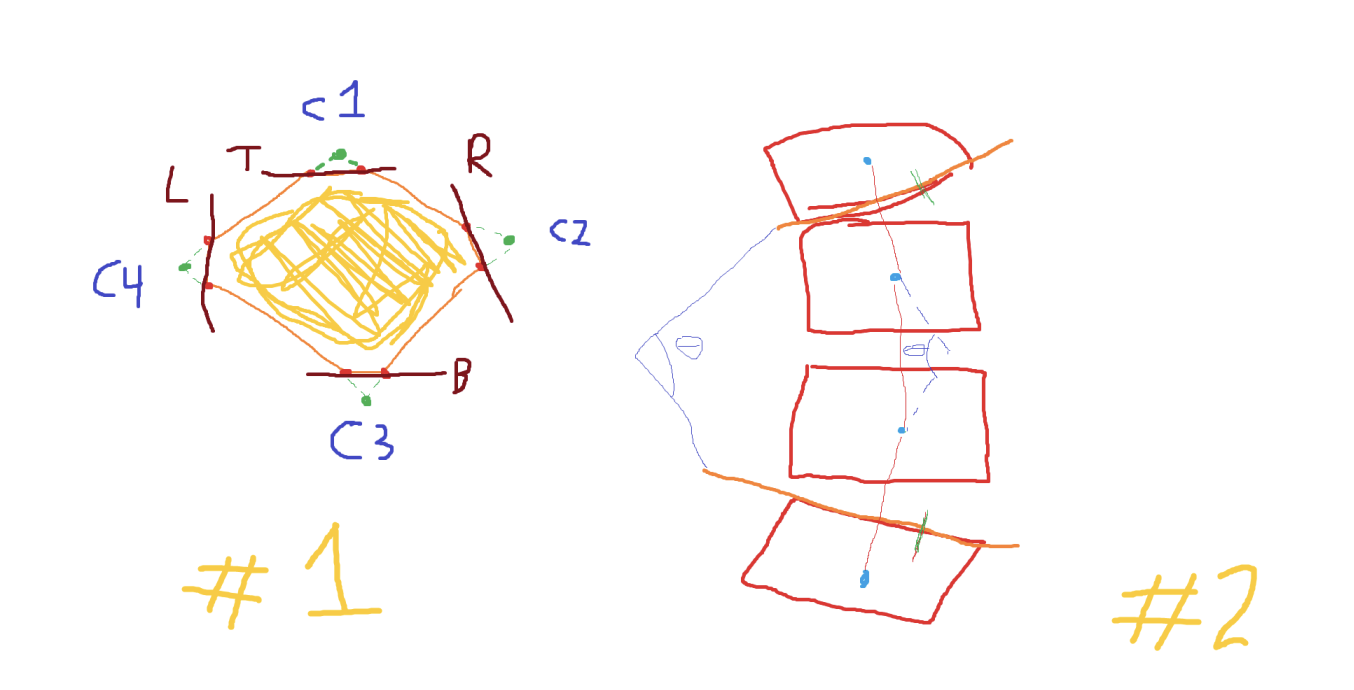 C1
T
R
L
C2
C4
B
C3
θ
θ
#1
#2